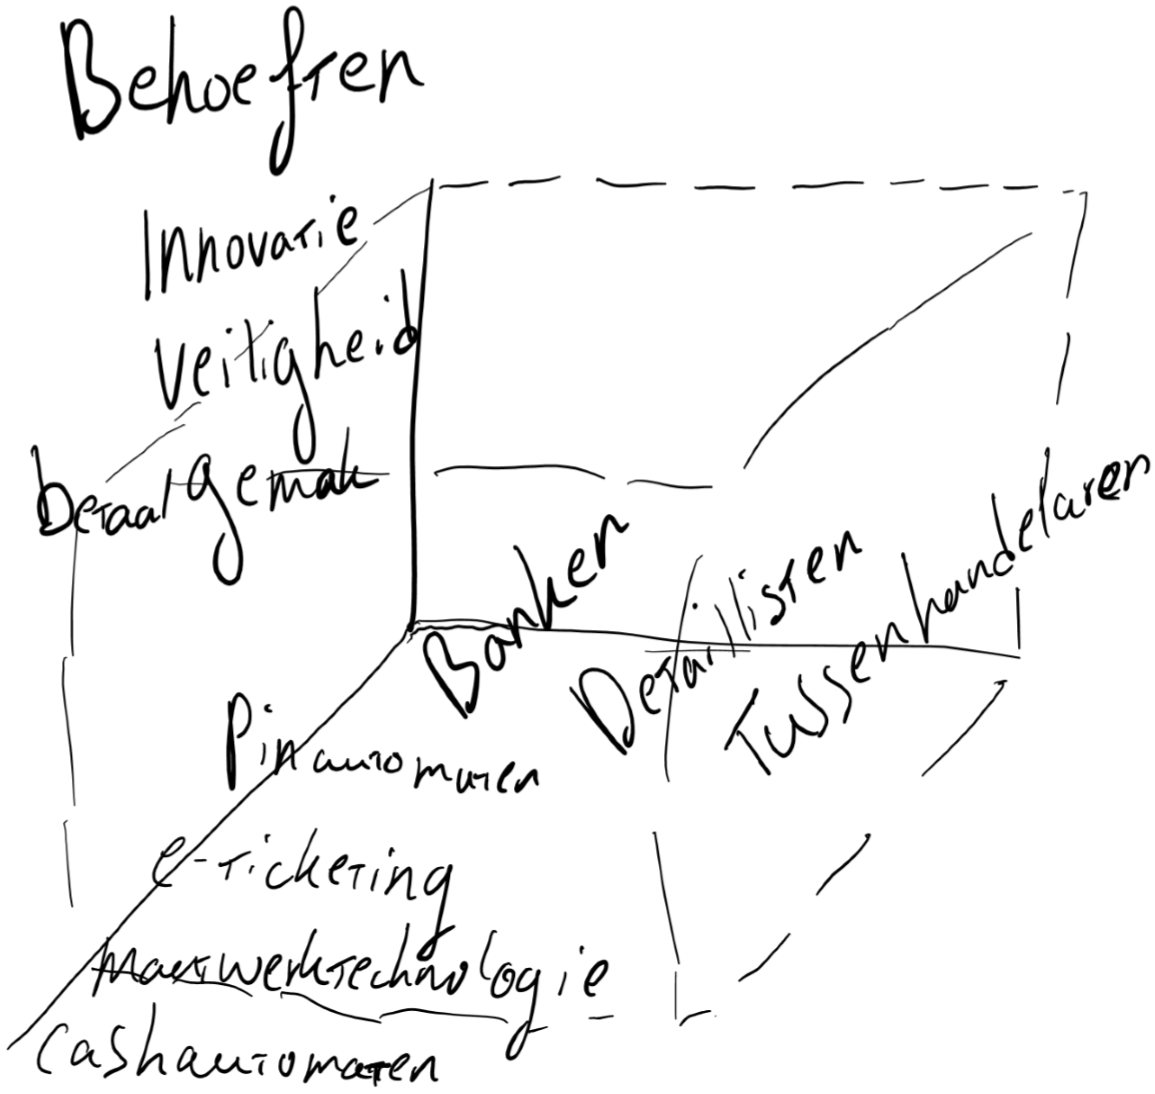 Behoeften
Innovatie
Veiligheid
Betaalgemak
Banken
Detaillisten
Tussenhandelaren
Pinautomaten
e-ticketing
Maatwerktechnologie
Cashautomaten